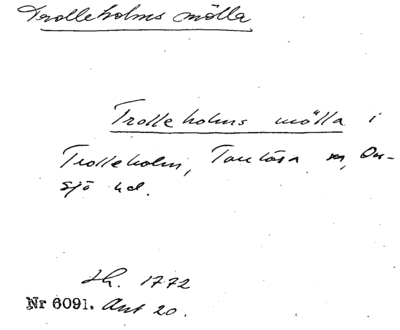 Trolleholms mölla
Trolleholms mölla i
Trolleholm, Torrlösa sn, On-
sjö hd.
Lh. 1772
Nr 6091. Ant 20.